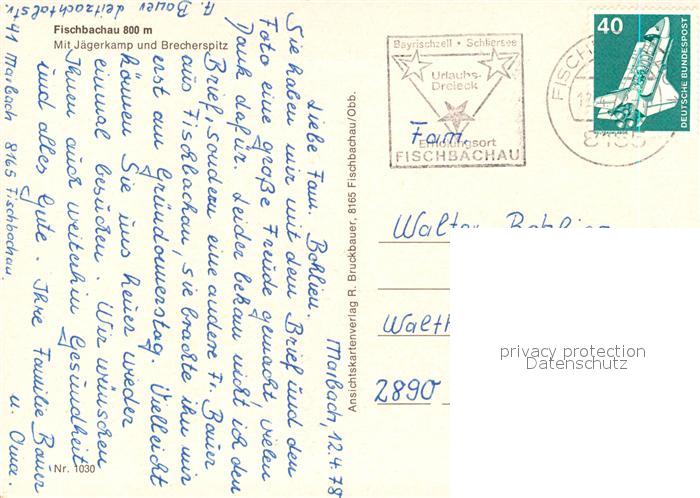 Fischbachau 800 m
Mit Jägerkamp und Brecherspitz
Maibach, 12.4.78
Liebe Fam. Bohlien.
Sie haben mir mit dem Brief und den
Foto eine große Freude gemacht, vielen
Dank dafür. Leider bekam nicht ich den
Brief, sondern eine andere Fr. Bauer
aus Fischbachau, sie brachte ihn mir
erst am Gründonnerstag. Vielleicht
können Sie uns heuer wieder
einmal besuchen. Wir wünschen
Ihnen auch weiterhin Gesundheit
und alles Gute. Ihre Familie Bauer
u. Oma.
A. Bauer Leitzachtalstr.
41 Maibach 8165 Fischbachau.
Nr. 1030
Ansichtskartenverlag R. Bruckbauer, 8165 Fischbachau/Obb.
Bayrischzell · Schliersee
Urlaubs-
Dreieck
Erholungsort
FISCHBACHAU
FISCH
8165
40
DEUTSCHE BUNDESPOST
Fam.
Walter
Walth
2890
privacy protection
Datenschutz